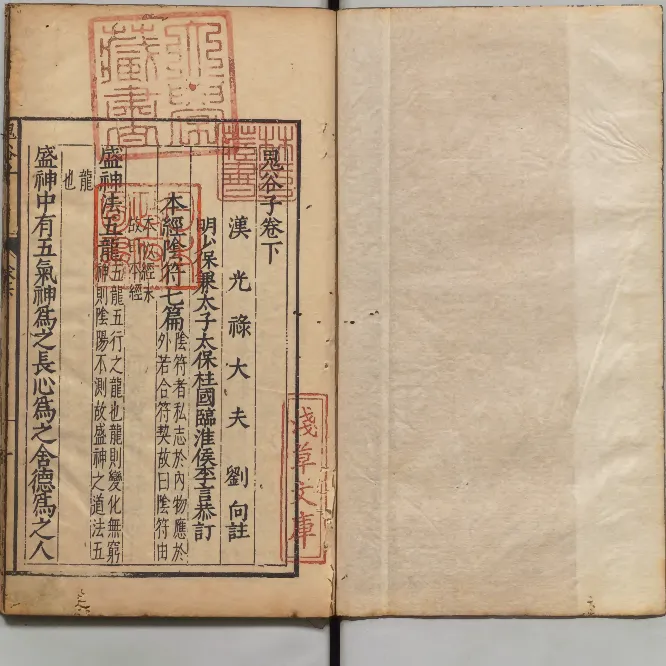 鬼谷子卷下
漢光祿大夫劉向註
明少保兼太子太保柱國臨淮侯李言恭訂
本經陰符七篇
陰符者私志於內物應於
外若合符契故曰陰符由
本以經末
故曰本經
盛神法五龍
五龍五行之龍也龍則變化無窮
神則陰陽不測故盛神之道法五
龍
也
盛神中有五氣神爲之長心爲之舍德爲之人
鬼谷子
藏書
淺草文庫